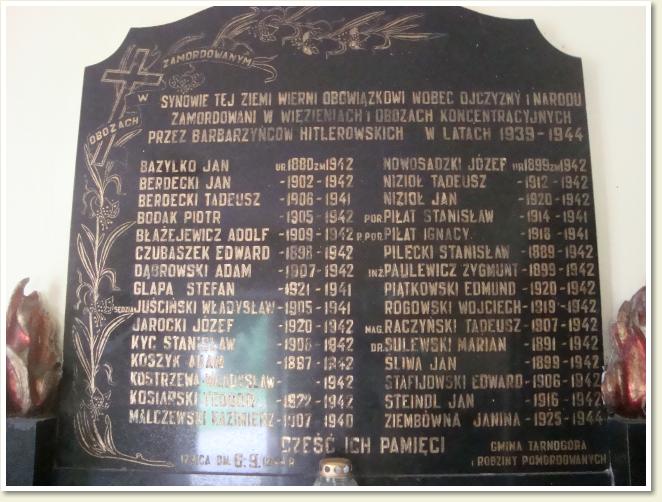 ZAMORDOWANYM
W
OBOZACH
SYNOWIE TEJ ZIEMI WIERNI OBOWIĄZKOWI WOBEC OJCZYZNY I NARODU
ZAMORDOWANI W WIĘZIENIACH I OBOZACH KONCENTRACYJNYCH
PRZEZ BARBARZYŃCÓW HITLEROWSKICH W LATACH 1939-1944
BAZYLKO JAN UR.1880 ZM.1942
BERDECKI JAN -1902-1942
BERDECKI TADEUSZ -1906-1941
BODAK PIOTR -1905-1942
BŁAŻEJEWICZ ADOLF -1909-1942
CZUBASZEK EDWARD -1898-1942
DĄBROWSKI ADAM -1907-1942
GLAPA STEFAN -1921-1941
SĘDZIA JUŚCIŃSKI WŁADYSŁAW -1905-1941
JAROCKI JÓZEF -1920-1942
KYC STANISŁAW -1906-1942
KOSZYK ADAM -1897-1942
KOSTRZEWA WŁADYSŁAW - -1942
KOSIARSKI TEODOR -1922-1942
MALCZEWSKI KAZIMIERZ -1907 1940
NOWOSADZKI JÓZEF UR.1899 ZM.1942
NIZIOŁ TADEUSZ -1912-1942
NIZIOŁ JAN -1920-1942
POR. PIŁAT STANISŁAW -1914-1941
P.POR. PIŁAT IGNACY -1918-1941
PILECKI STANISŁAW -1889-1942
INŻ. PAULEWICZ ZYGMUNT -1899-1942
PIĄTKOWSKI EDMUND -1920-1942
ROGOWSKI WOJCIECH -1919-1942
MAG. RACZYŃSKI TADEUSZ -1907-1942
DR. SULEWSKI MARIAN -1891-1942
SLIWA JAN -1899-1942
STAFIJOWSKI EDWARD -1906-1942
STEINDL JAN -1916-1942
ZIEMBÓWNA JANINA -1925-1944
CZEŚĆ ICH PAMIĘCI
IZBICA DN. 6.9.
GMINA TARNOGÓRA
I RODZINY POMORDOWANYCH